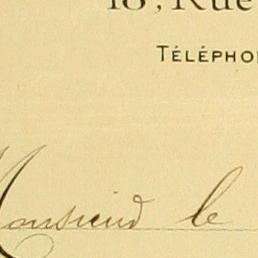 18, Rue
TÉLÉPHO
Monsieur le